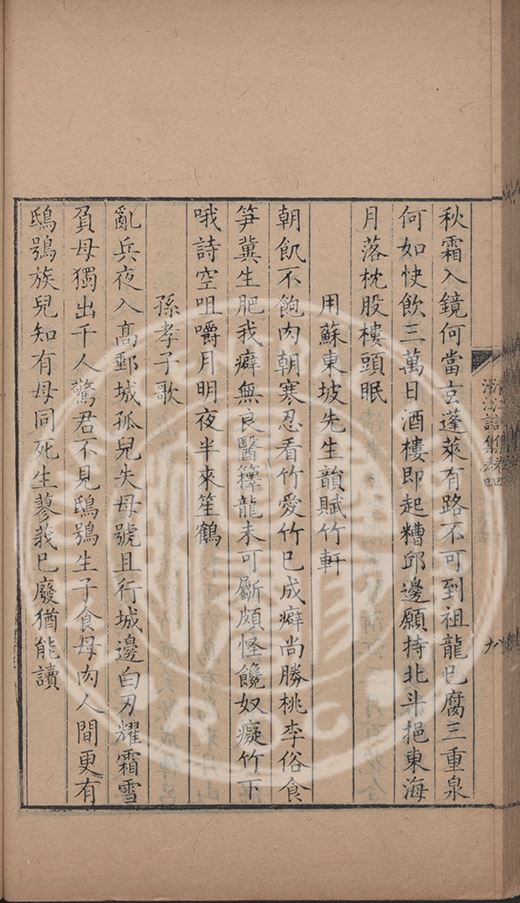 秋霜入鏡何當玄蓬萊有路不可到祖龍已腐三重泉
何如快飲三萬日酒樓即起糟邱邊願持北斗挹東海
月落枕股樓頭眠
用蘇東坡先生韻賦竹軒
朝飢不飽肉朝寒忍看竹愛竹已成癖尚勝桃李俗食
笋冀生肥我癖無良醫籜龍未可斸頗怪饞奴癡竹下
哦詩空咀嚼月明夜半來笙鶴
孫孝子歌
亂兵夜入高郵城孤兒失母號且行城邊白刃耀霜雪
負母獨出千人驚君不見鴟鴞生子食母肉人間更有
鴟鴞族兒知有母同死生蓼莪已廢猶能讀